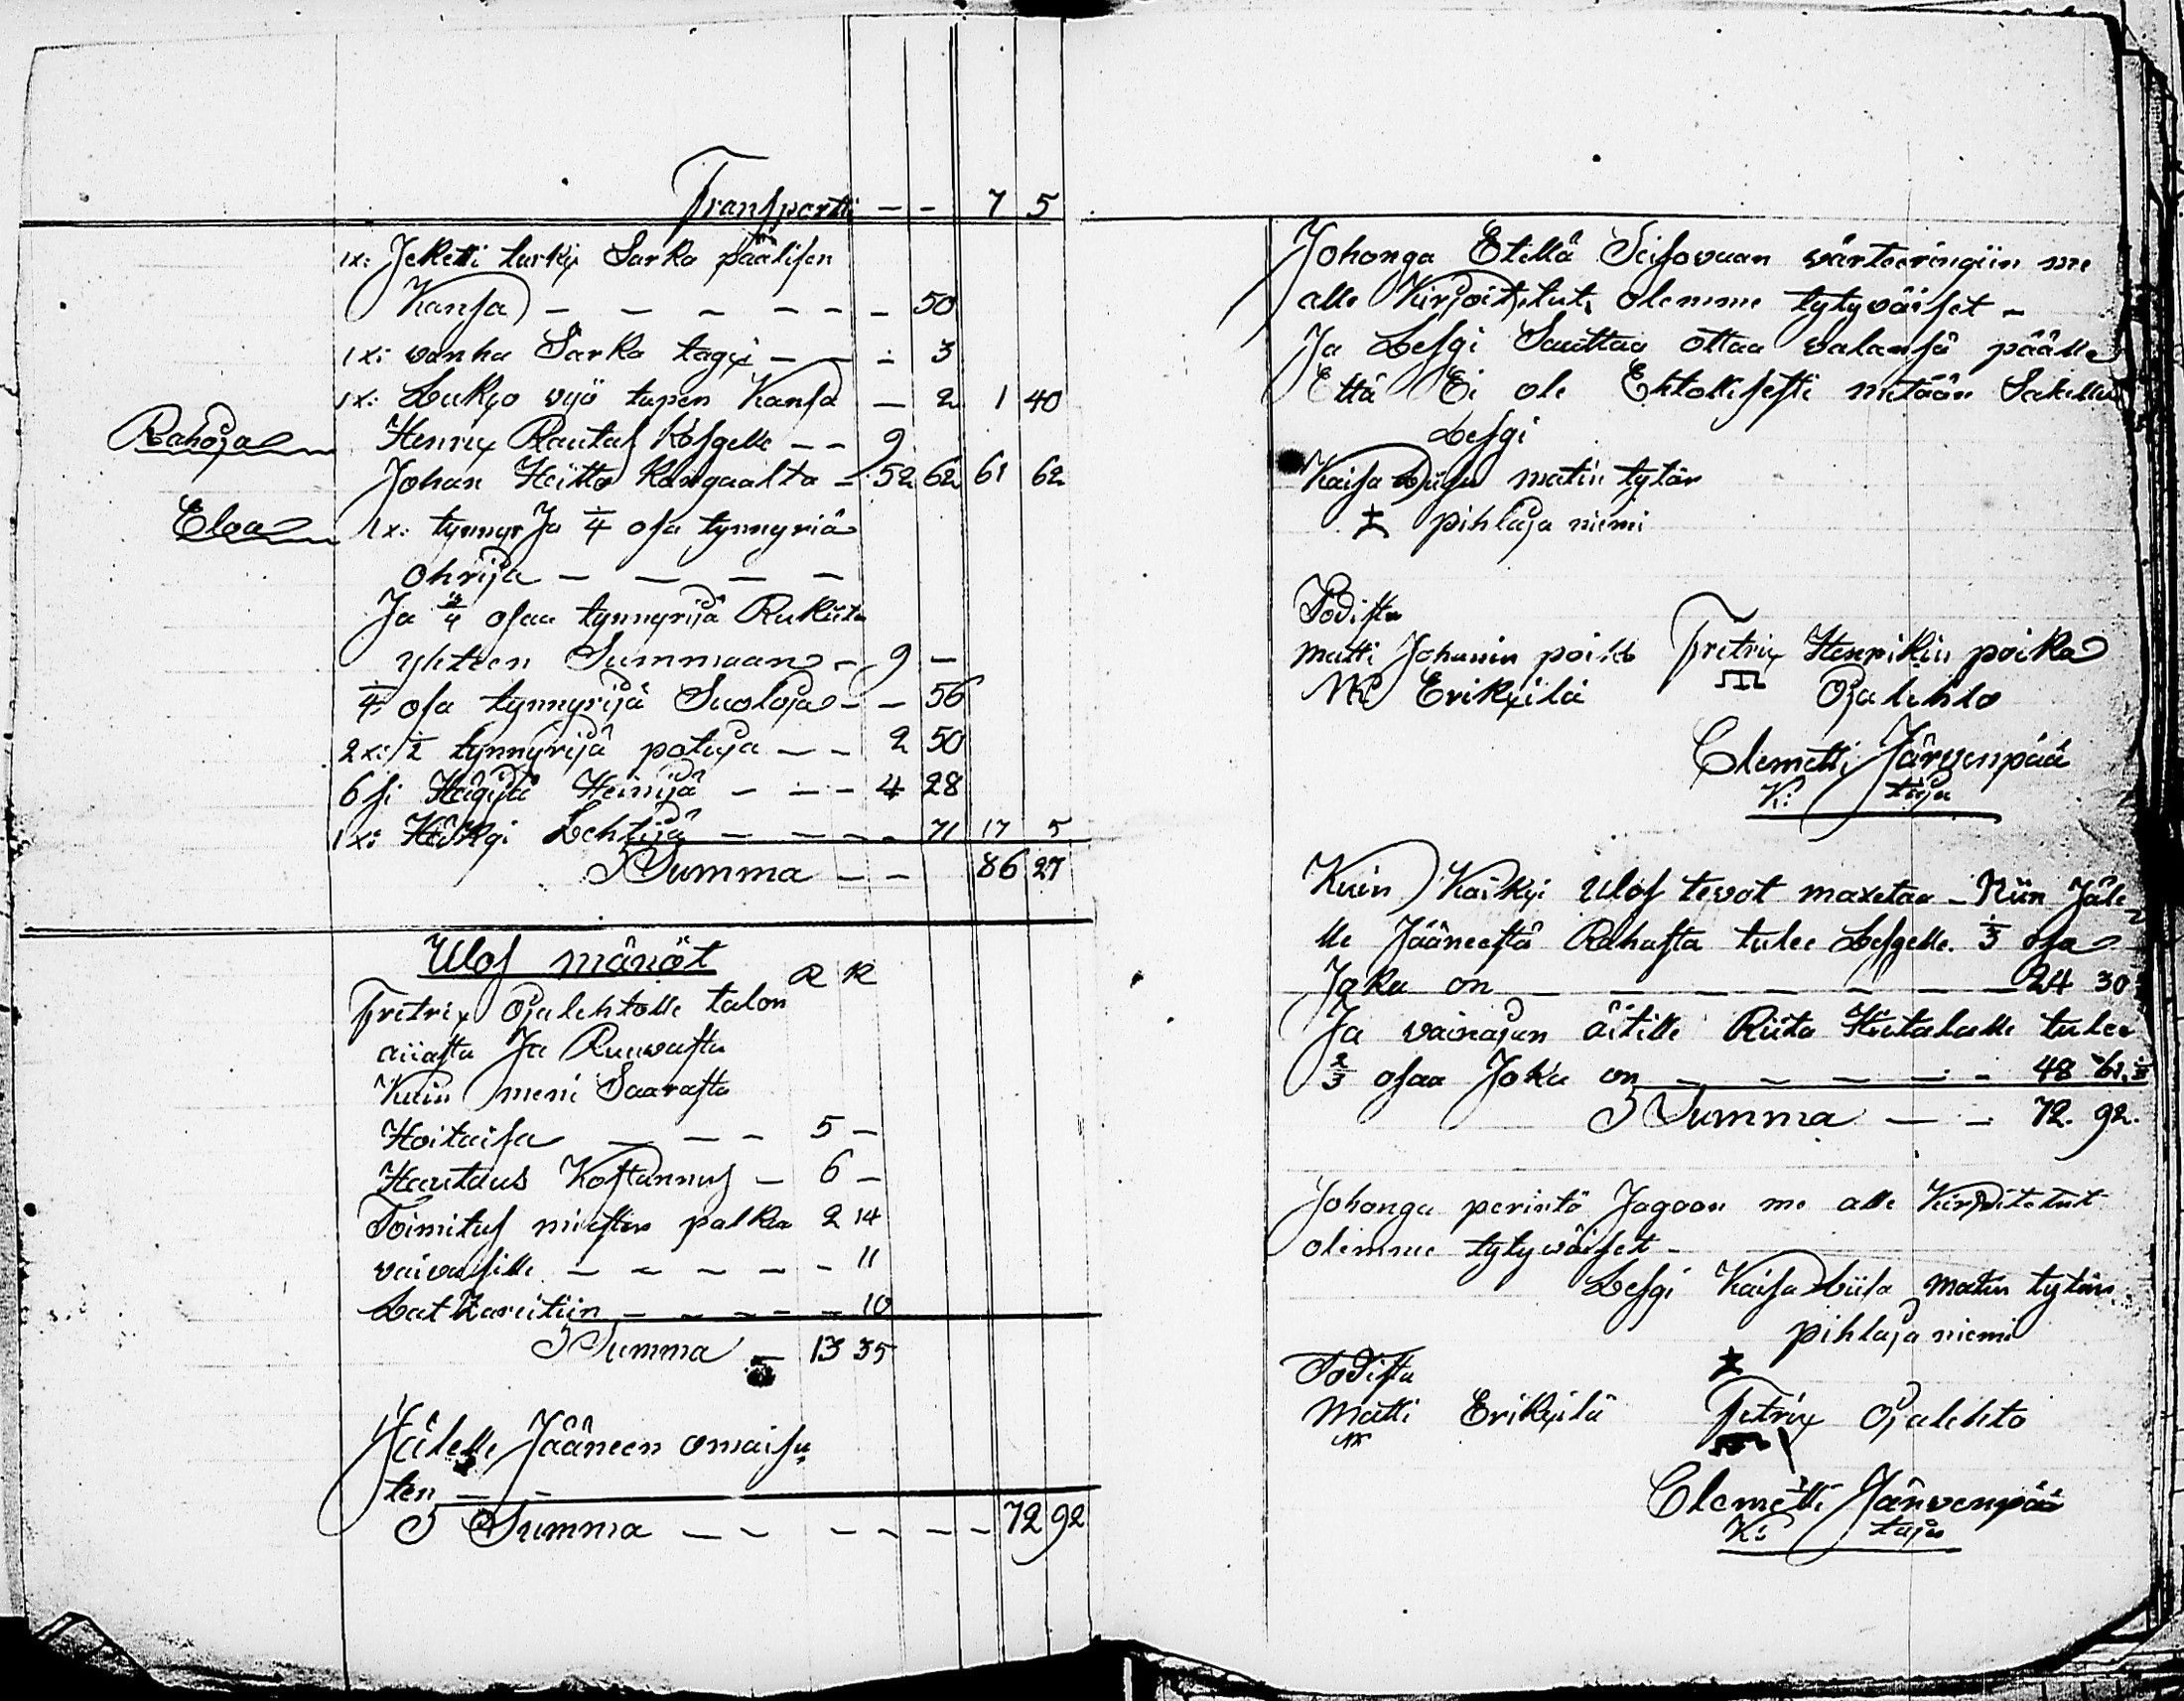 Transportti — — 7 5
1x: Jeketti turkki Sarka päälisen
Kansa — — — — — 50
1x: vanha Sarka takki — — 3
1x: Lukko vyö tupen Kansa — 2 1 40
Rahoja Henrix Rautus Kosgelle — — 9
Johan Heitto Kangaalta — 52 62 61 62
Eloa 1x: tynnyr Ja 1/4 osa tynnyriä
ohrija — — — —
Ja 3/4 osaa tynnyrijä Rukiita
yhteen Summaan — 9 —
1/4 osa tynnyrijä Suoloja — — 56
2x: 1/2 tynnyrijä potuja — — 2 50
6 si Heinijä — — — 4 28
1x: Lehtijä — — — — 71 17 5
Summa — — 86 27
Ulos mänöt R K
Fretrix Ojalehtolle talon
aiiasta Ja Ruuvasta
Kuin meni Saarasta
Hoitaisa — — — 5 —
Hautaus Kostannus — 6 —
Toimitus miesten palkka 2 14
vaivasille — — — — — 11
Latzareitiin — — — — — 10
Summa — 13 35
Jälelle Jääneen omaisu
ten — —
Summa — — — — — — 72 92
Johonga Etellä Seisovaan värteeringiin me
alle Kirjoitetut olemme tytyväiset —
Ja Lesgi Sauttaa ottaa valansä päälle
Että Ei ole Ehtollisesti mitään Sakellut
Lesgi
Kaisa Liisa matin tytär
pihlaja niemi
Todista
Matti Johanin poika Fretrix Henrikin poika
Erikkilä Ojalehto
Clemetti Järvenpää
K: taja
Kuin Kaikki Ulos tevot maxetaa — Niin Jäle
lle Jääneestä Rahasta tulee Lesgelle 1/3 osa
Joka on — — — — — — — 24 30
Ja vainajan äitille Riita Hiitalalle tulee
2/3 osaa Joka on — — — — — 48 61
Summa — — 72. 92.
Johonga perintö Jagoon me alle Kirjoitetut
olemme tytyväiset —
Lesgi Kaisa Liisa Matin tytär
pihlaja niemi
Todista
Matti Erikkilä Fetrix Ojalehto
Clemetti Järvenpää
K: taja